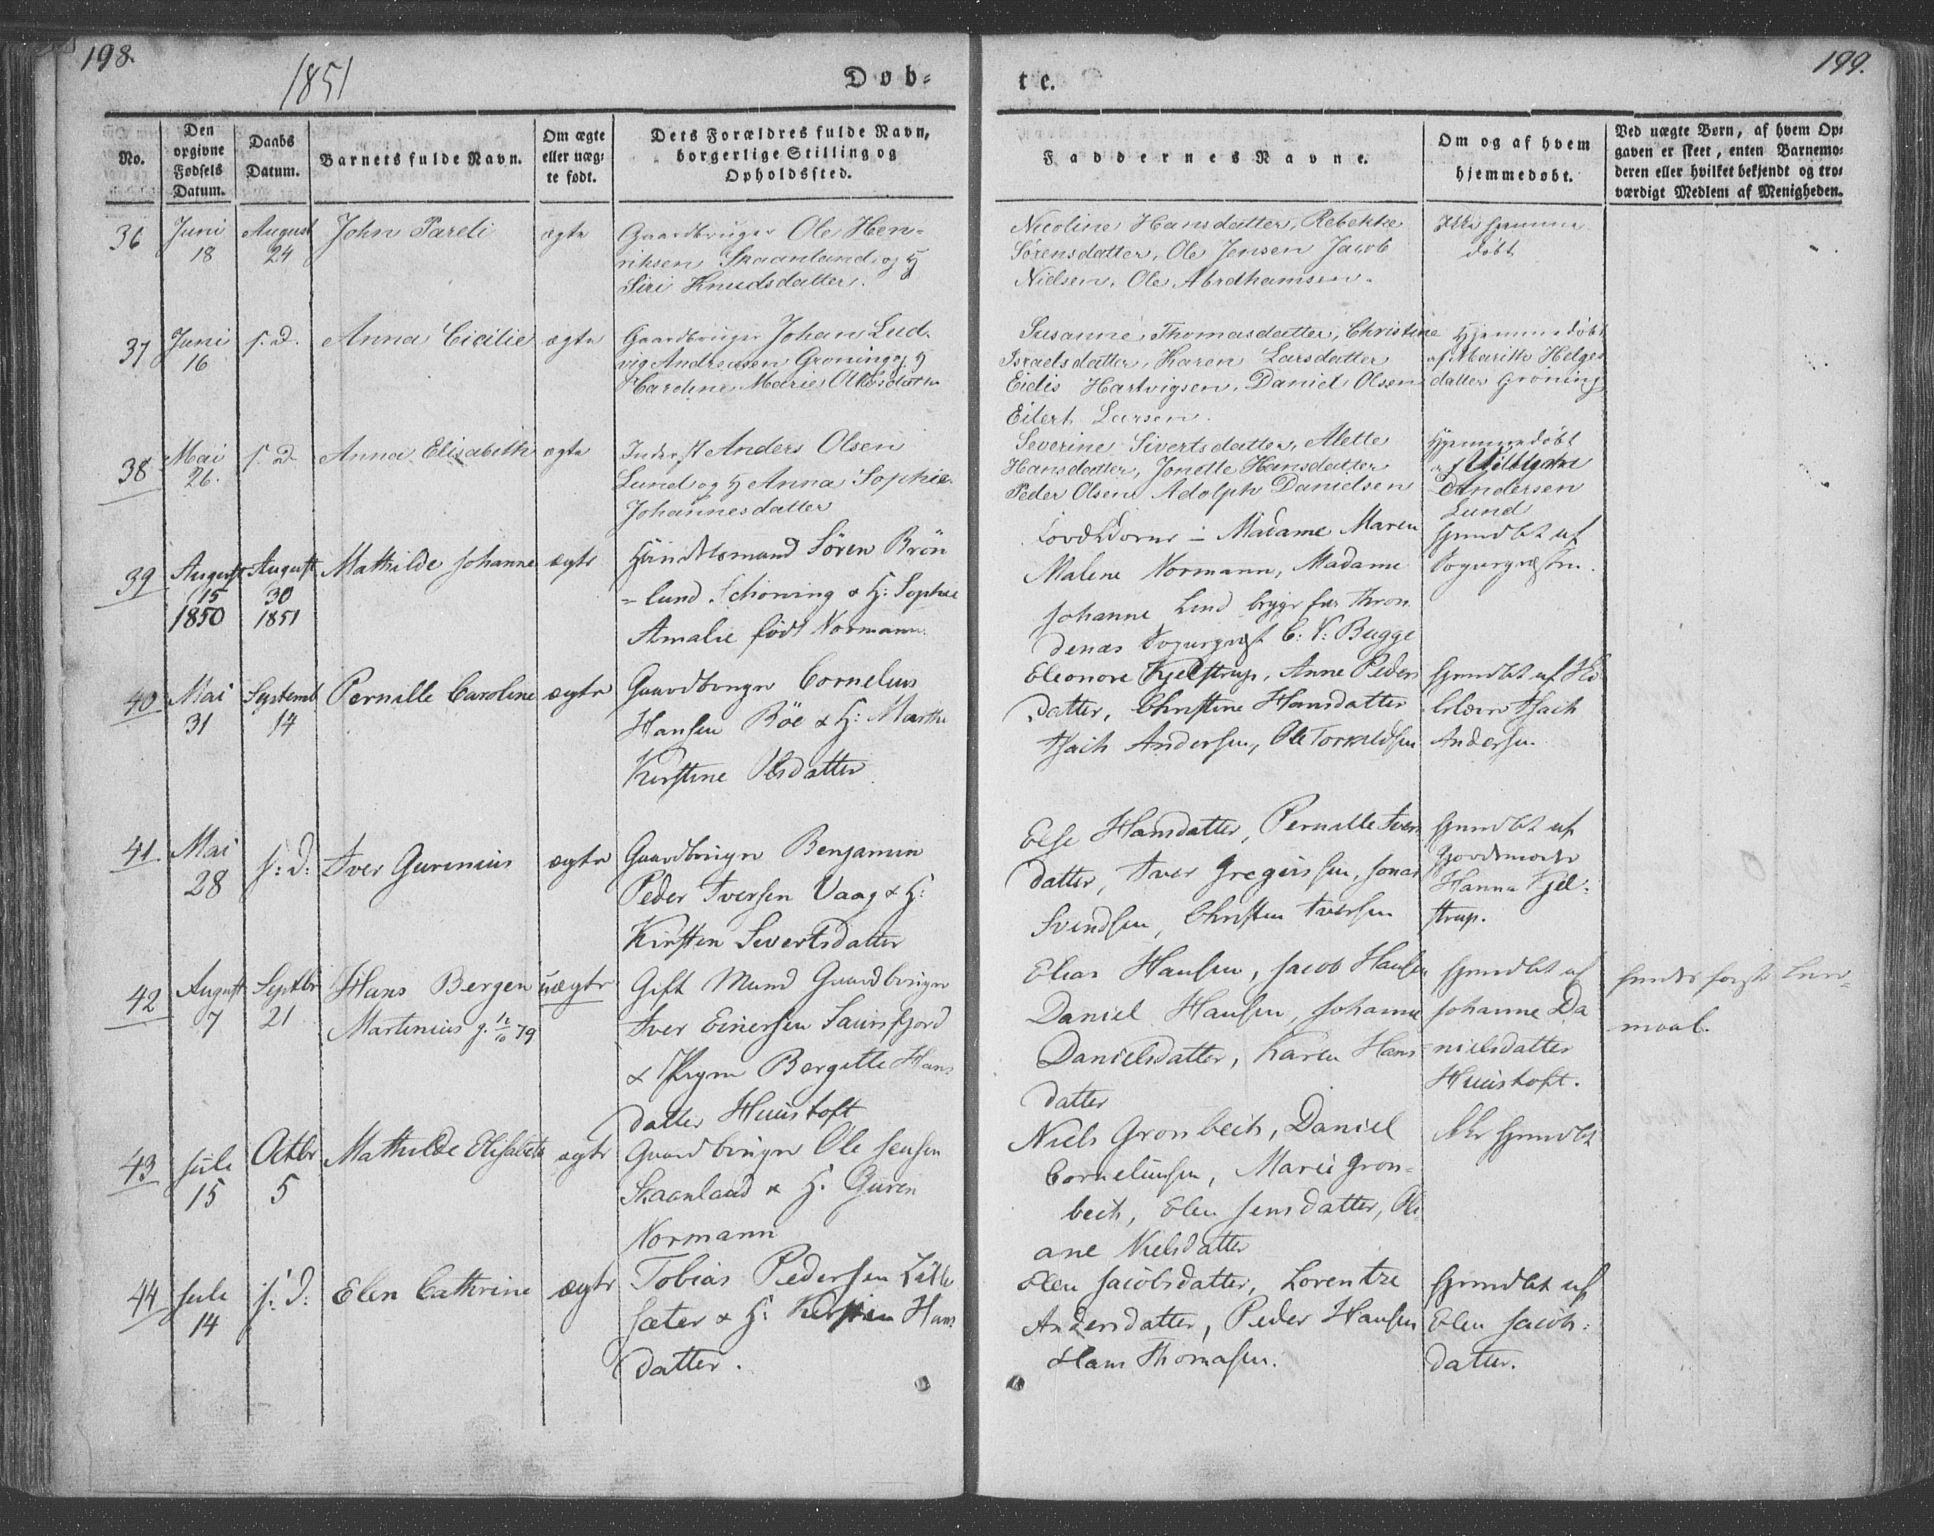 198.
1851
Døb-
te.
199.
No.
Den
opgivne
Fødsels
Datum.
Daabs
Datum.
Barnets fulde Navn.
Om ægte
eller uæg-
te født.
Dets Forældres fulde Navn,
borgerlige Stilling og
Opholdssted.
Faddernes Navne.
Om og af hvem
hjemmedøbt.
Ved uægte Børn, af hvem Op-
gaven er skeet, enten Barnemo-
deren eller hvilket bekjendt og tro-
værdigt Medlem af Menigheden.
36
Juni
18
August
24
John Pareli
ægte
Gaardbruger Ole Hen-
riksen Skaanland og H
Siri Knudsdatter.
Nicoline Hansdatter, Rebekke
Sørensdatter, Ole Jensen Jacob
Nielsen, Ole Abrahamsen.
Ikke hjemme
døbt
37
Juni
16
s. D.
Anna Cicilie
ægte
Gaardbruger Johan Lud-
vig Andreasen Grøning og H
Caroline Marie Olesdatter
Susanne Thomasdatter, Christine
Israelsdatter, Karen Larsdatter
Eidis Hartvigsen, Daniel Olsen
Eilert Larsen.
Hjemmedøbt
af Maritte Helges
datter Grøning
38
Mai
26.
s. D
Anna Elisabeth
ægte
Inderst Anders Olsen
Lund og H Anna Sophie
Johannesdatter
Severine Sivertsdatter, Alette
Hansdatter, Jonette Hansdatter
Peder Olsen Adolph Danielsen
Hjemmedøbt
af
Andersen
Lund
39
August
15
1850
August
30
1851
Mathilde Johanne
ægte
Handelsmand Sören Brön
-lund Schöning & H: Sophie
Amalie födt Normann.
- Madame Maren
Malene Normann, Madame
Johanne Lind begge fra Thron
denæs Sogneprest C: V: Bugge
Hjemdbt af
Sognepræsten.
40
Mai
31
Septemb
14
Pernille Caroline
ægte
Gaardbruger Cornelius
Hansen Böe & H: Marthe
Kirstine Olsdatter
Eleonore Kjelstrup, Anne Peders
datter, Christine Hansdatter
Isach Andersen, Ole Torkildsen
Hjemdbt af Ki
Isach
Andersen
41
Mai
28
s: D:
Iver Gurinius
ægte
Gaardbruger Benjamin
Peder Iversen Vaag & H:
Kirsten Sivertsdatter
Else Hansdatter, Pernille Iver
datter, Iver Gregersen, Jonas
Svendsen, Christen Iversen
Hjemdbt af
Jordemoder
Hanna Kjel-
strup.
42
August
7
Septbr
21
Hans Bergen
Martinius
uægte
Gift Mand Gaardbruger
Iver Einersen Saursfjord
& Pigen Bergitte Hans
datter Huustoft
Elias Hansen, Jacob Hansen
Daniel Hansen, Johanne
Danielsdatter, Karen Hans-
datter
Hjemdbt af
Johanne Da
nielsdatter
Huustoft.
hendes første Leier-
maal.
43
Juli
15
Octbr
5
Mathilde Elisabeth
ægte
Gaardbruger Ole Jensen
Skaanland & H: Guren
Normann
Niels Gronbech, Daniel
Corneliussen, Marie Gron-
bech, Elen Jensdatter, Oli-
ane Nielsdatter
Ikke hjemdbt
44
Juli
14
s: D:
Elen Cathrine
ægte
Tobias Pedersen Lille
sæter & H: Kirsten Hans
datter.
Elen Jacobsdatter, Lorentze
Andersdatter, Peder Hansen
Hans Thomasen.
Hjemdbt af
Elen Jacob-
datter.